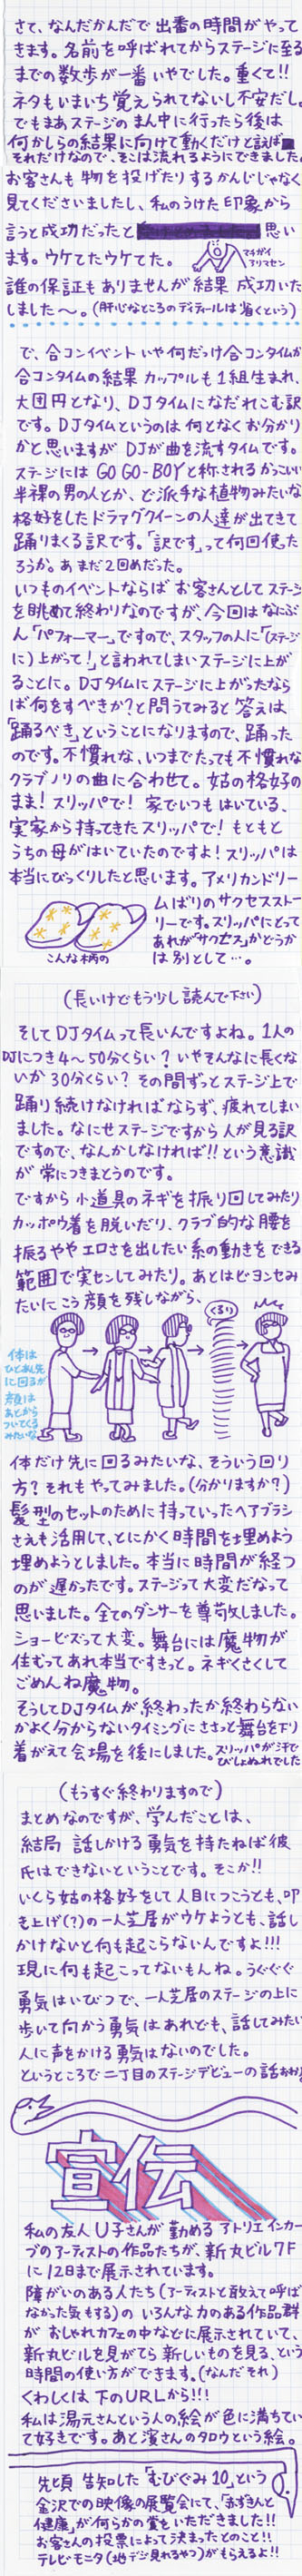 さて、なんだかんだで出番の時間がやって
きます。名前を呼ばれてからステージに至る
までの数歩が一番いやでした。重くて!!
ネタもいまいち覚えられてないし不安だし。
でもまあステージのまん中に行ったら後は
何かしらの結果に向けて動くだけと言えば
それだけなので、そこは流れるようにできました。
お客さんも物を投げたりするかんじじゃなく
見てくださいましたし、私のうけた印象から
言うと成功だったと思い
マチガイ
アリマセン
ます。ウケてたウケてた。
誰の保証もありませんが結果成功いた
しました〜。(肝心なところのディティールは省くという)
で、合コンイベントいや何だっけ合コンタイムが
合コンタイムの結果カップルも1組生まれ、
大団円となり、DJタイムになだれこむ訳
です。DJタイムというのは何となくお分かり
かと思いますがDJが曲を流すタイムです。
ステージにはGOGO-BOYと称されるかっこいい
半裸の男の人とか、ど派手な植物みたいな
格好をしたドラァグクイーンの人達が出てきて
踊りまくる訳です。「訳です。」って何回使った
ろうか。あまだ2回めだった。
いつものイベントならばお客さんとしてステージ
を眺めて終わりなのですが、今回はなにぶ
ん「パフォーマー」ですので、スタッフの人に「(ステージ
に)上がって!」と言われてしまいステージに上が
ることに。DJタイムにステージに上がったなら
ば何をすべきか?と問うてみると答えは
「踊るべき」ということになりますので、踊った
のです。不慣れな、いつまでたっても不慣れな
クラブノリの曲に合わせて。姑の格好の
まま!スリッパで!家でいつもはいている、
実家から持ってきたスリッパで!もともと
うちの母がはいていたのですよ!スリッパは
本当にびっくりしたと思います。アメリカンドリー
ムばりのサクセスストー
リーです。スリッパにとって
あれが“サクセス”かどうか
は別として…。
こんな柄の
(長いけどもう少し読んで下さい)
そしてDJタイムって長いんですよね。1人の
DJにつき4〜50分くらい?いやそんなに長くな
いか30分くらい?その間ずっとステージ上で
踊り続けなければならず、疲れてしまい
ました。なにせステージですから人が見る訳
ですので、なんかしなければ!!という意識
が常につきまとうのです。
ですから小道具のネギを振り回してみたり
カッポウ着を脱いだり、クラブ的な腰を
振るややエロさを出したい系の動きをできる
範囲で実センしてみたり。あとはビヨンセみ
たいにこう顔を残しながら、
くるり
体は
ひとあし先
に回るが
顔は
あとから
ついてくる
みたいな
体だけ先に回るみたいな、そういう回り
方?それもやってみました。(分かりますか?)
髪型のセットのために持っていったヘアブラシ
さえも活用して、とにかく時間を埋めよう
埋めようとしました。本当に時間が経つ
のが遅かったです。ステージって大変だなって
思いました。全てのダンサーを尊敬しました。
ショービズって大変。舞台には魔物が
住むってあれ本当ですきっと。ネギくさくして
ごめんね魔物。
そうしてDJタイムが終わったか終わらない
かよく分からないタイミングにささっと舞台を下り
着がえて会場を後にしました。スリッパが汗で
びしょぬれでした
(もうすぐ終わりますので)
まとめなのですが、学んだことは、
結局話しかける勇気を持たねば彼
氏はできないということです。そこか!!
いくら姑の格好をして人目につこうとも、叩
き上げ(?)の一人芝居がウケようとも、話し
かけないと何も起こらないんですよ!!!
現に何も起こってないもんね。うぐぐぐ
勇気はいびつで、一人芝居のステージの上に
歩いて向かう勇気はあれども、話してみたい
人に声をかける勇気はないのでした。
というところで二丁目のステージデビューの話おわり
宣伝
私の友人U子さんが勤めるアトリエインカー
ブのアーティストの作品たちが、新丸ビル7F
に12日まで展示されています。
障がいのある人たち(アーティストと敢えて呼ば
なかった気もする)のいろんな力のある作品群
がおしゃれカフェの中などに展示されていて、
新丸ビルを見がてら新しいものを見る、という
時間の使い方ができます。(なんだそれ)
くわしくは下のURLから!!!
私は湯元さんという人の絵が色に満ちてい
て好きです。あと濱さんのタロウという絵。
先頃告知した「むびぐみ10」という
金沢での映像の展覧会にて、「赤ずきんと
健康」が何らかの賞をいただきました!!
お客さんの投票によって決まったとのこと!!
テレビモニタ(地デジ見れるやつ)がもらえるよ!!